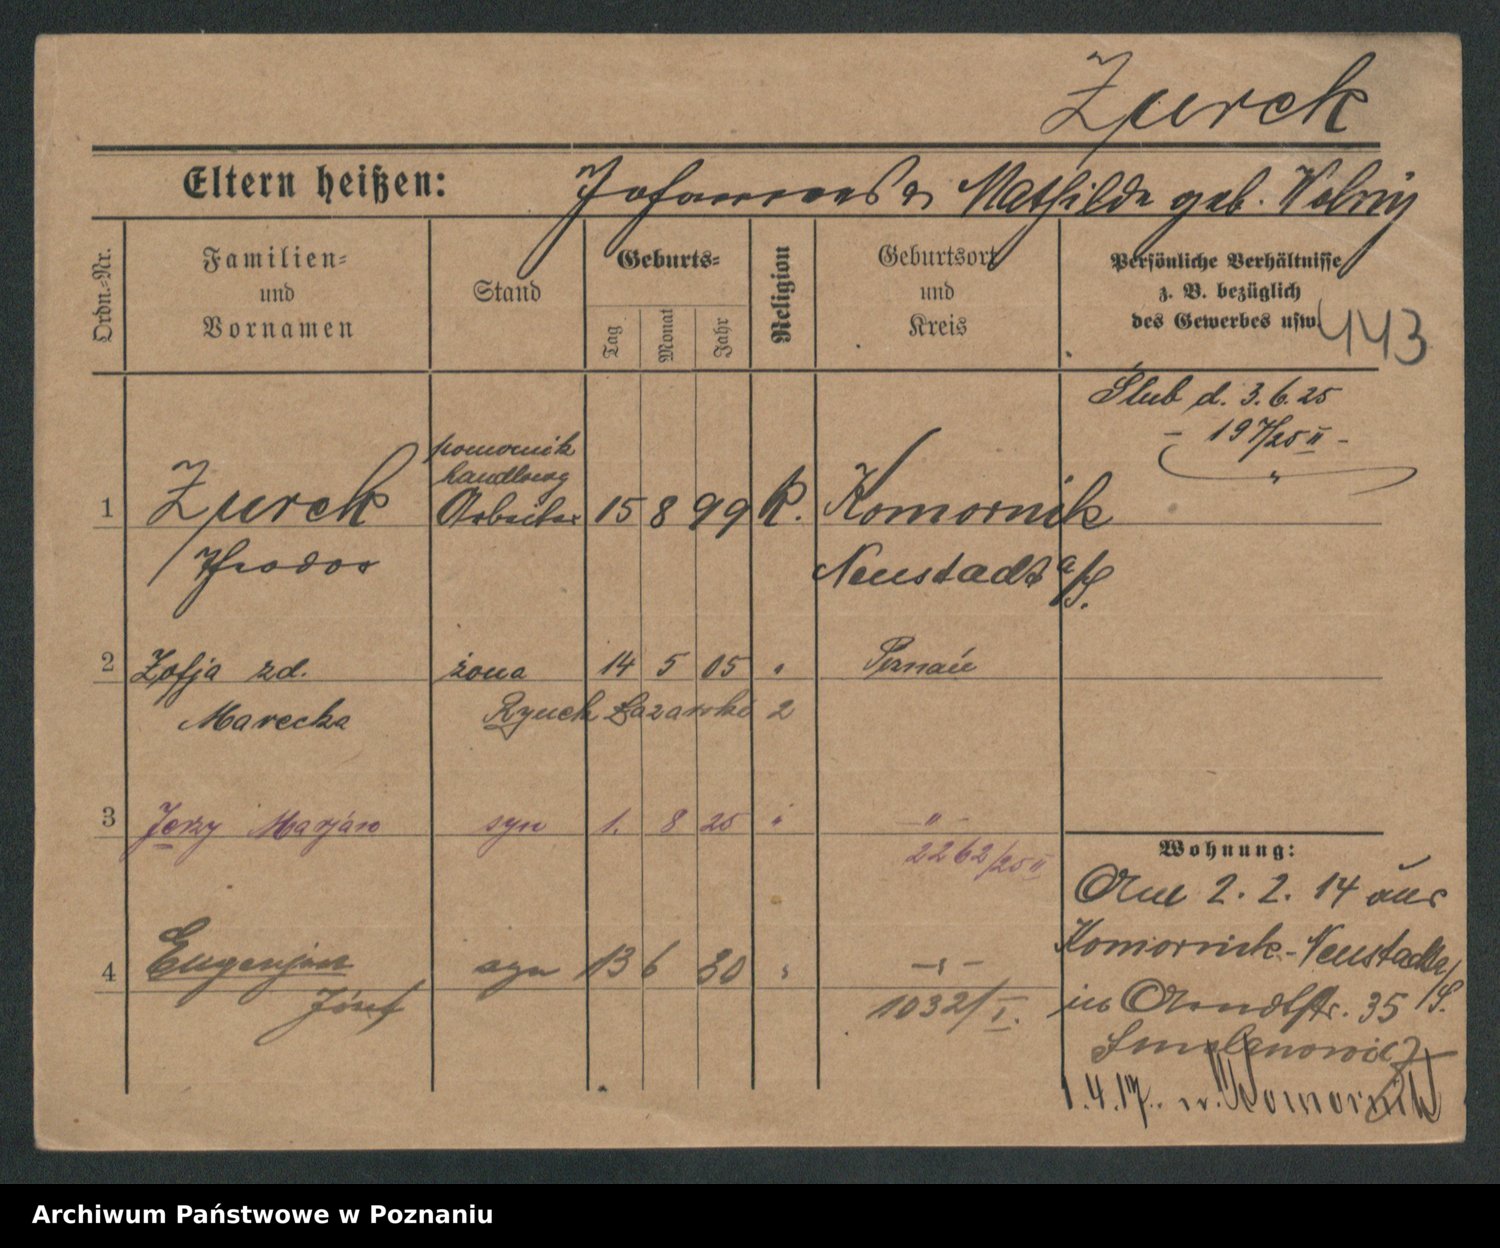 Zurek
Eltern heißen: Johannes u Mathilde geb.
Ordn.-Nr.
Familien- und Vornamen
Stand
Geburts-
Tag
Monat
Jahr
Religion
Geburtsort und Kreis
Persönliche Verhältnisse
z. B. bezüglich
des Gewerbes usw.
443
Ślub d. 3.6.25
- 197/25 II -
pomocnik
handlowy
1 Zurek Arbeiter 15 8 99 K. Komornik
Theodor Neustadt a/S.
2 Zofja zd. żona 14 5 05 " Poznań
Marecka Rynek Łazarski 2
3 Jerzy Marjan syn 1. 8 25 " - " -
2262/25 II
4 Eugenjusz syn 13 6 30 " - " -
Józef 1032/I.
Wohnung:
Am 2. 2. 14 aus
Komornik-Neustadt a/S.
in Arndtstr. 35
1.4.17. n. Komornik
Archiwum Państwowe w Poznaniu